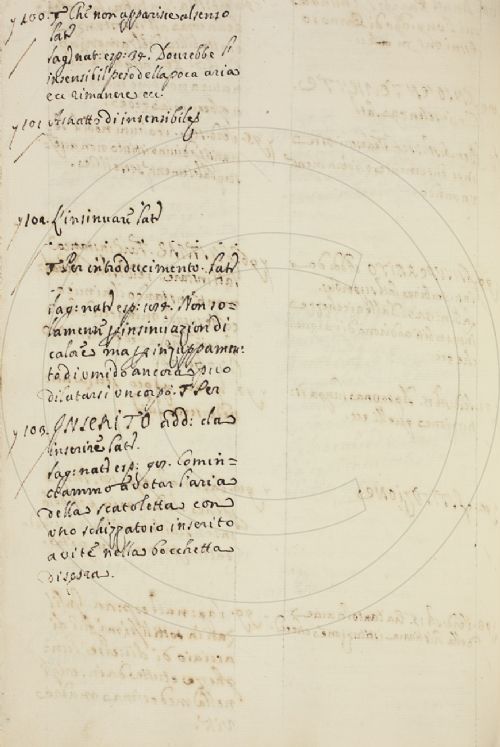 100. T Che non apparisce al senso
lat
sag: nat: esp: 34. Dovrebbe l'
insensibil peso della poca aria
ecc rimanere ecc.
101. Astratto di insensibile
102. L'insinuare lat
T Per introducimento. lat
sag: nat esp: 194. Non so=
lamente p insinuazion di
calore ma p inzuppamen:
to di umido ancora può
dilatarsi un corpo. T Per
103. INSERITO add: da
inserire lat
sag: nat esp: Comin=
ciammo a votar l'aria
della scatoletta con
uno schizzatoio inserito
a vite nella bocchetta
di sopra.